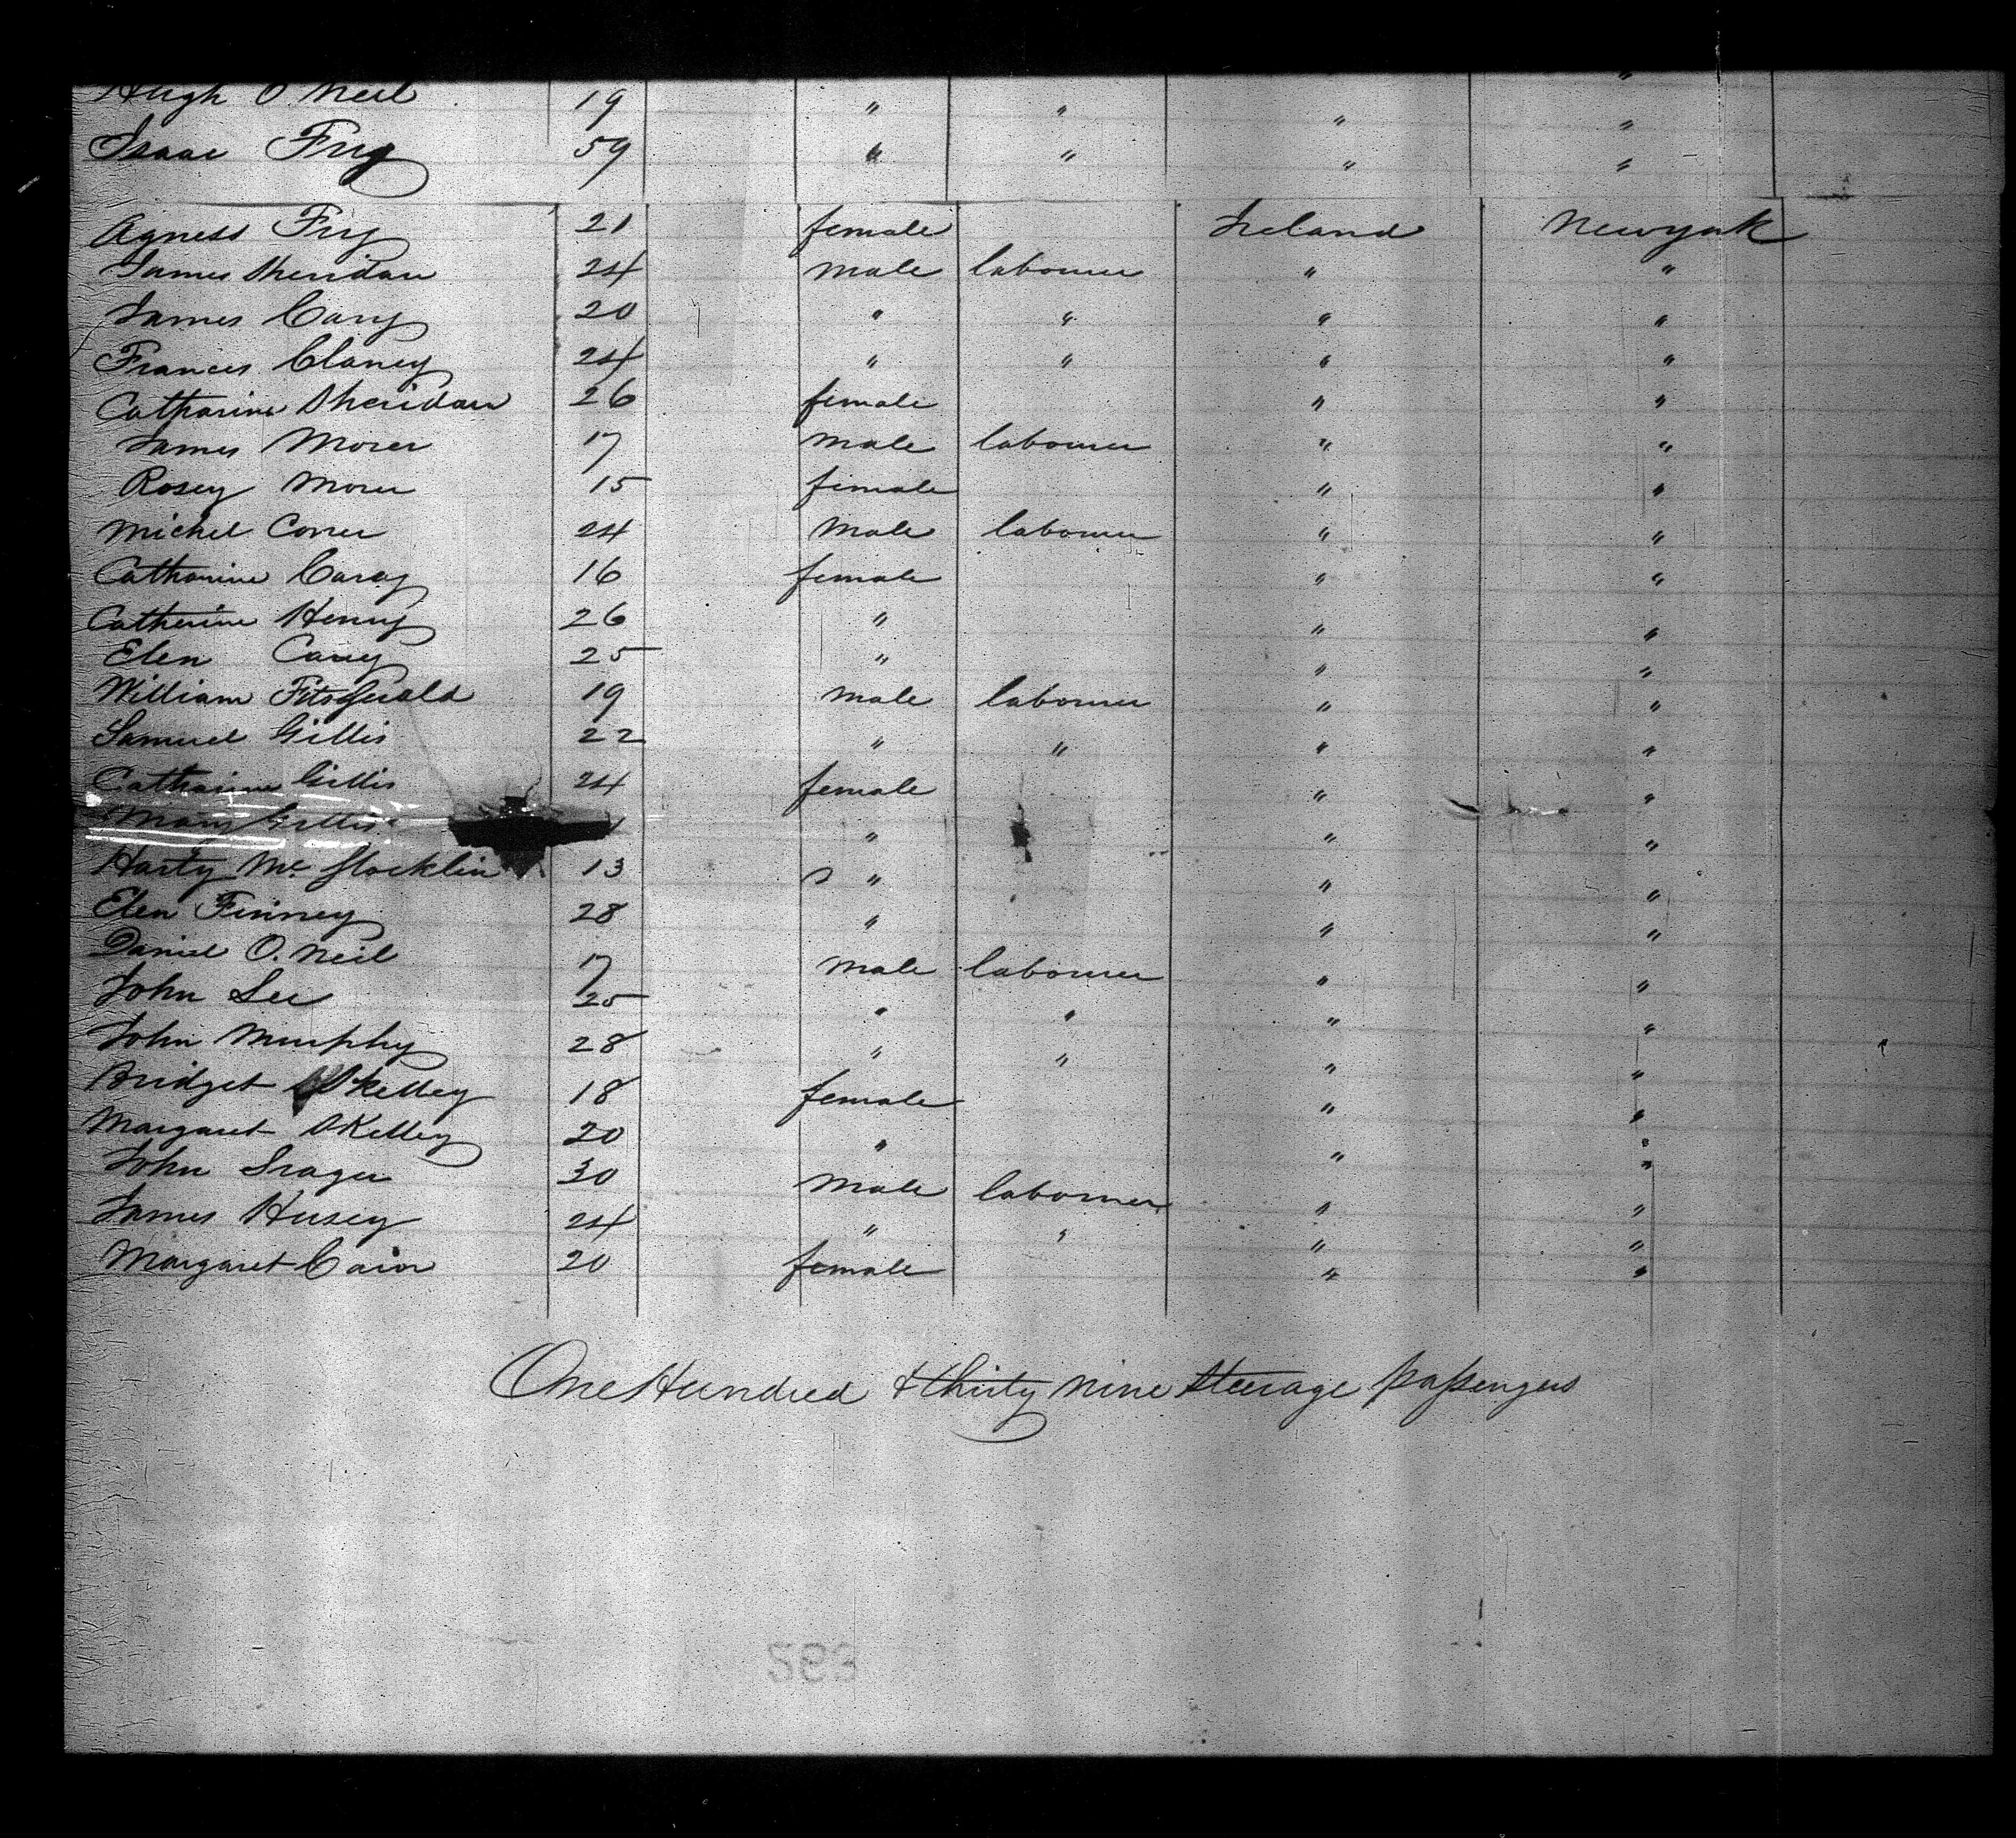 Hugh O. Neil 19 " " " "
Isaac Fry 59 " " " "
Agness Fry 21 female Ireland Newyork
James Sheridan 24 male labourer " "
James Cary 20 " " " "
Frances Clancy 24 " " " "
Catharine Sheridan 26 female " "
James Morer 17 male labourer " "
Rosey Morer 15 female " "
Michel Correr 24 male labourer " "
Catharine Caray 16 female " "
Catherine Henry 26 " " "
Elen Carey 25 " " "
William Fitzgerald 19 male labourer " "
Samuel Gillis 22 " " " "
Catharine Gillis 24 female " "
Mary Gillis " " "
Harty Mc 13 " " "
Elen Finney 28 " " "
Daniel O. Neil 17 male labourer " "
John Lee 25 " " " "
John Murphy 28 " " " "
Bridget OKelley 18 female " "
Margaret OKelley 20 " " "
John 30 male labourer " "
James Husey 24 " " " "
Margaret Cain 20 female " "
One Hundred & thirty nine Steerage passengers